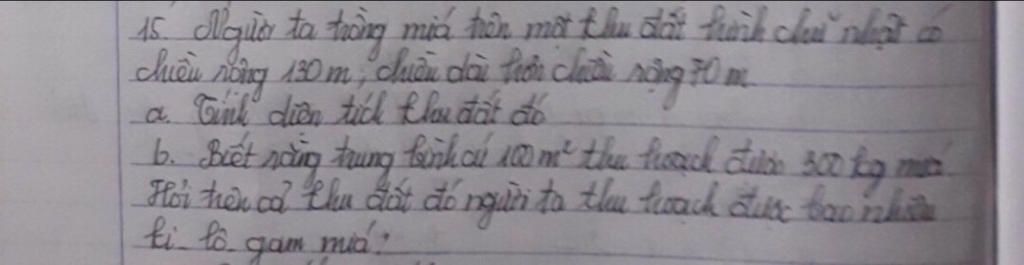 15. Người ta trồng mía trên một khu đất hình chữ nhật có
chiều rộng 130m, chiều dài hơn chiều rộng 70m
a. Tính diện tích khu đất đó
b. Biết rằng trung bình cứ 100m² thu hoạch được 300kg mía
Hỏi trên cả khu đất đó người ta thu hoạch được bao nhiêu
ki-lô-gam mía?